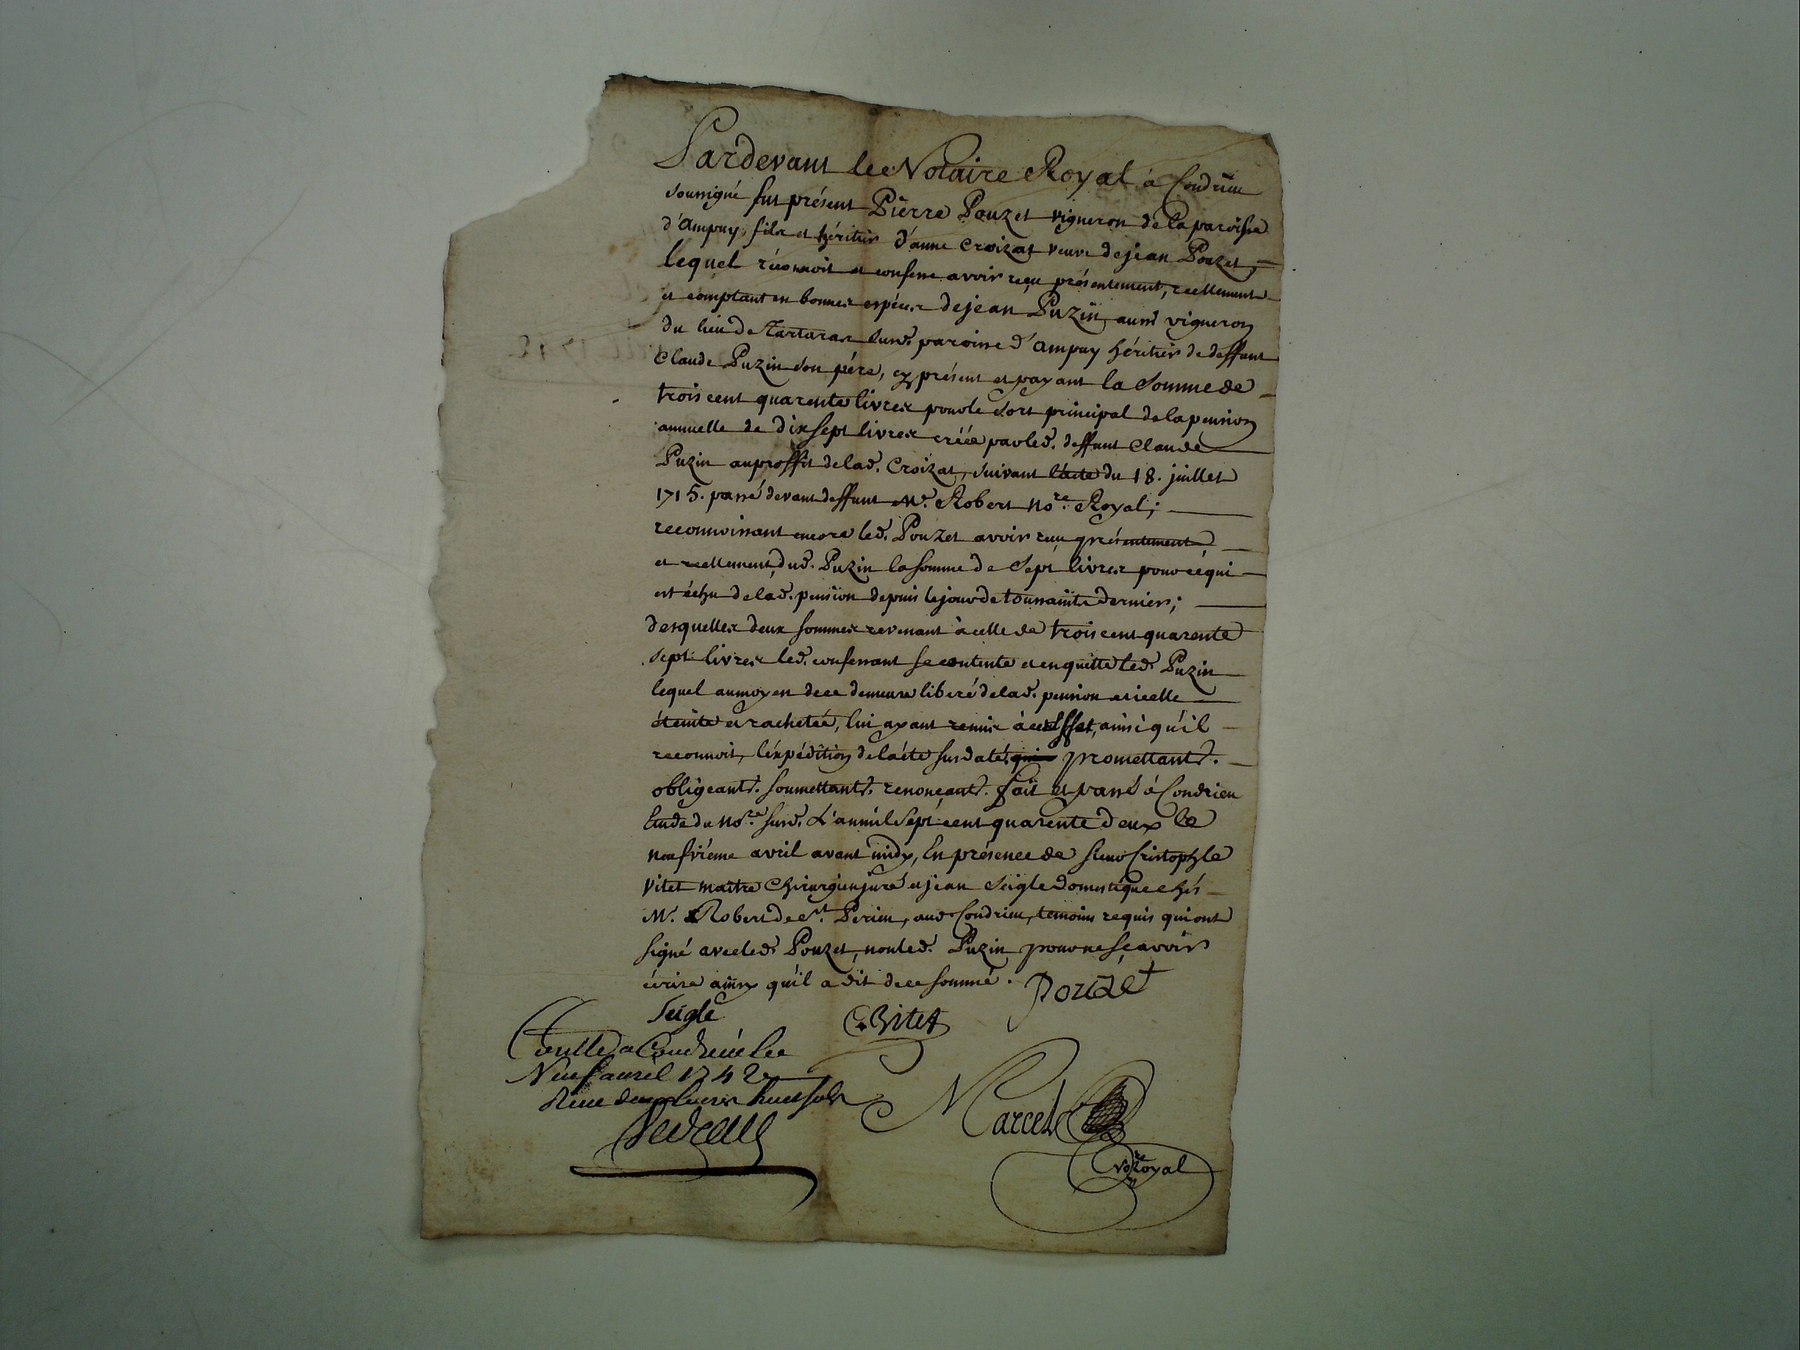 Pardevant le Notaire Royal à Condrieu
soussigné fut présent Pierre Pouzet vigneron de la paroisse
d'Ampuy, fils et héritier d'anne Croizat veuve de jean Pouzet,
lequel réconnoit et confesse avoir reçu présentement, reellement
et comptant en bonnes espéces de jean Puzin, aussi vigneron
du lieu de Tartaras susd. paroisse d'ampuy héritier de deffunt
Claude Puzin son pére, cy présent et payant la Somme de
trois cent quarente livres pour le sort principal de la pension
annuelle de dix sept livres créée par led. deffunt Claude
Puzin au proffit de lad. Croizat, suivant l'acte du 18. juillet
1715. passé devant deffunt Me. Robert Nore. Royal;
reconnoissant encore led. Pouzet avoir reçu présentement
et reellement, dud. Puzin la somme de Sept livres pour ce qui
est échu de lad. pension depuis le jour de toussaints dernier;
desquelles deux sommes revenant à celle de trois cent quarente
sept livres led. confessant se contente et en quitte led. Puzin
lequel au moyen de ce demeure libéré de lad. pension et icelle
éteinte et rachetée, lui ayant remis à cet effet, ainsi qu'il
reconnoit, l'éxpédition de l'acte susdaté promettant.
obligeant. soumettant. renonceant. fait et passé à Condrieu
Etude du Nore. susd. L'an mil Sept cent quarente deux le
neufviéme avril avant midy, En présence de sieur Cristophle
Vitet maître chirurgien juré et jean Seigle domestique chés
Mr. Robert de St. Perieu, aud. Condrieu, temoins requis qui ont
signé avec led. Pouzet, non led. Puzin pour ne sçavoir
écrire ainsy qu'il a dit de ce sommé. Pouzet
Seigle C. Vitet
Conllé a Condrieu le
Neuf avril 1742
Reçu deux livres huit sols
Marcel
Nore Royal